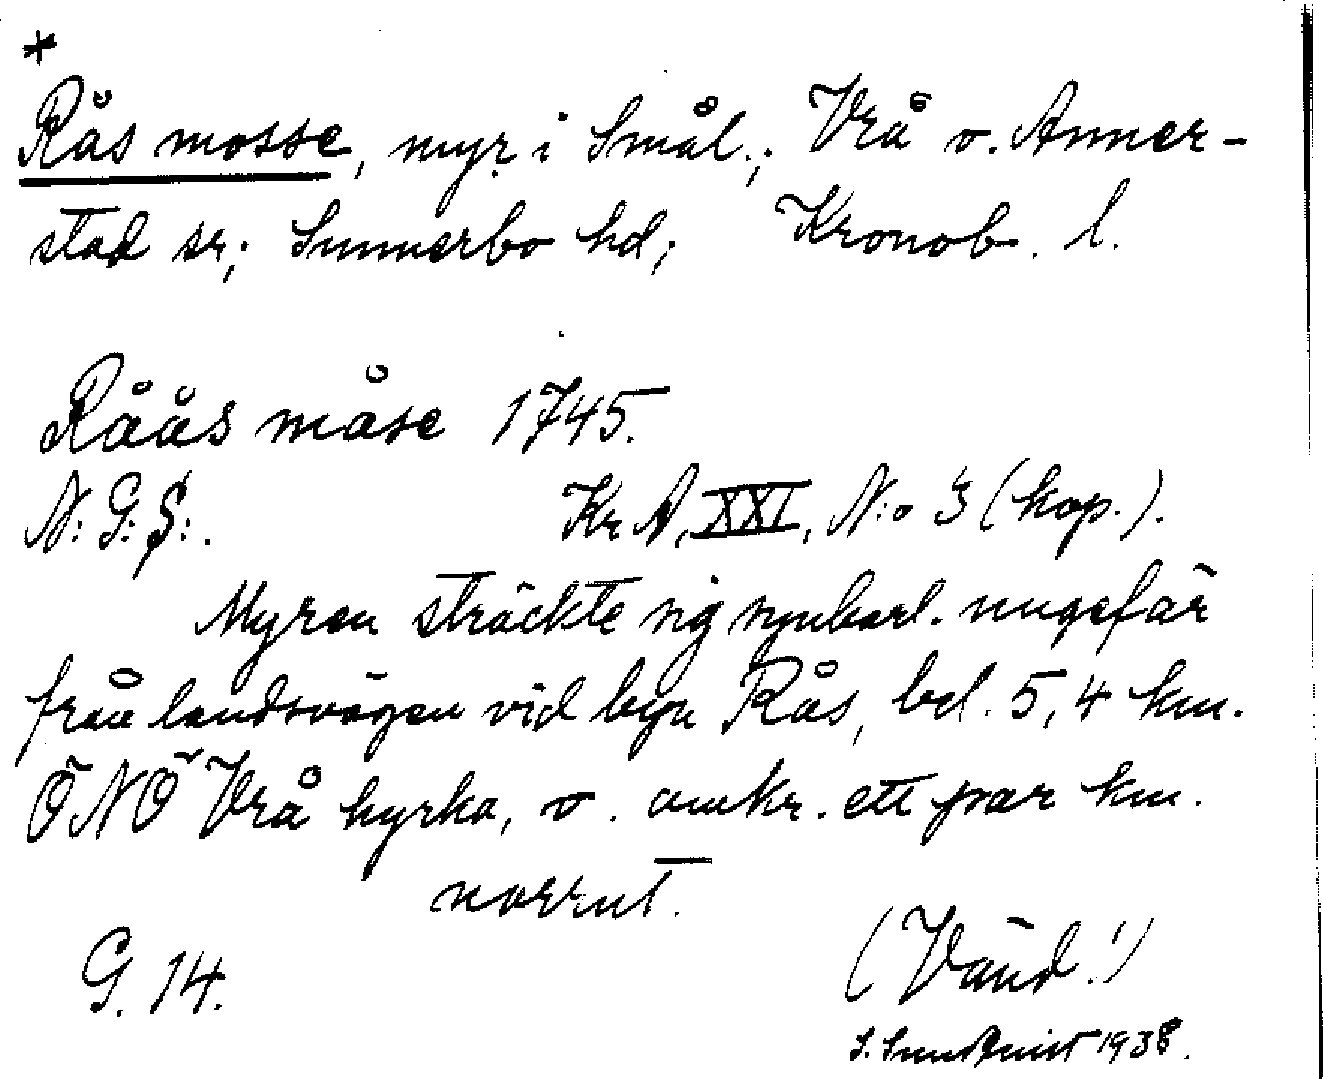 *
Rås mosse, myr i Smål.; Vrå o. Anner-
stad sr; Sunnerbo hd; Kronob. l.
Råås måse 1745.
N: G: S:. Kr A, XXI, N:o 3 (kop.).
Myren sträckte sig synbarl. ungefär
från landsvägen vid byn Rås, bel. 5,4 km.
ÖNÖ Vrå kyrka, o. omkr. ett par km.
norrut.
G. 14. (Vänd!)
S. Sundquist 1938.